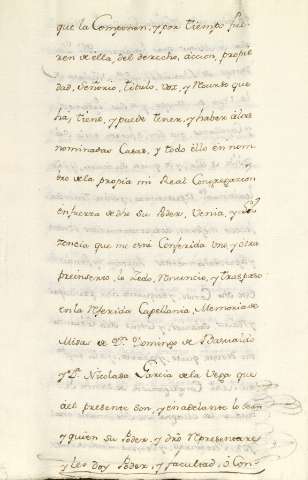 que la Componen, y por tiempo fue-
ren de ella, del derecho, accion, propie-
dad, Señorio, titulo, voz, y Recurso que
ha, tiene, y puede tener, y haber a las
nominadas Casas, y todo ello en nom-
bre de la propia mi Real Congregacion
en fuerza de dho su Poder, Venia, y
tencia que me está Conferida uno y otro
preinserto, lo Zedo, Renuncio, y traspaso
en la Referida Capellania, Memoria de
Misas de Dn. Domingo de
y Da. Nicolasa Garcia de la Vega que
del presente son, y en adelante lo sean
y quien su Poder, y dro Representare
y les doy Poder, y facultad, o Con-